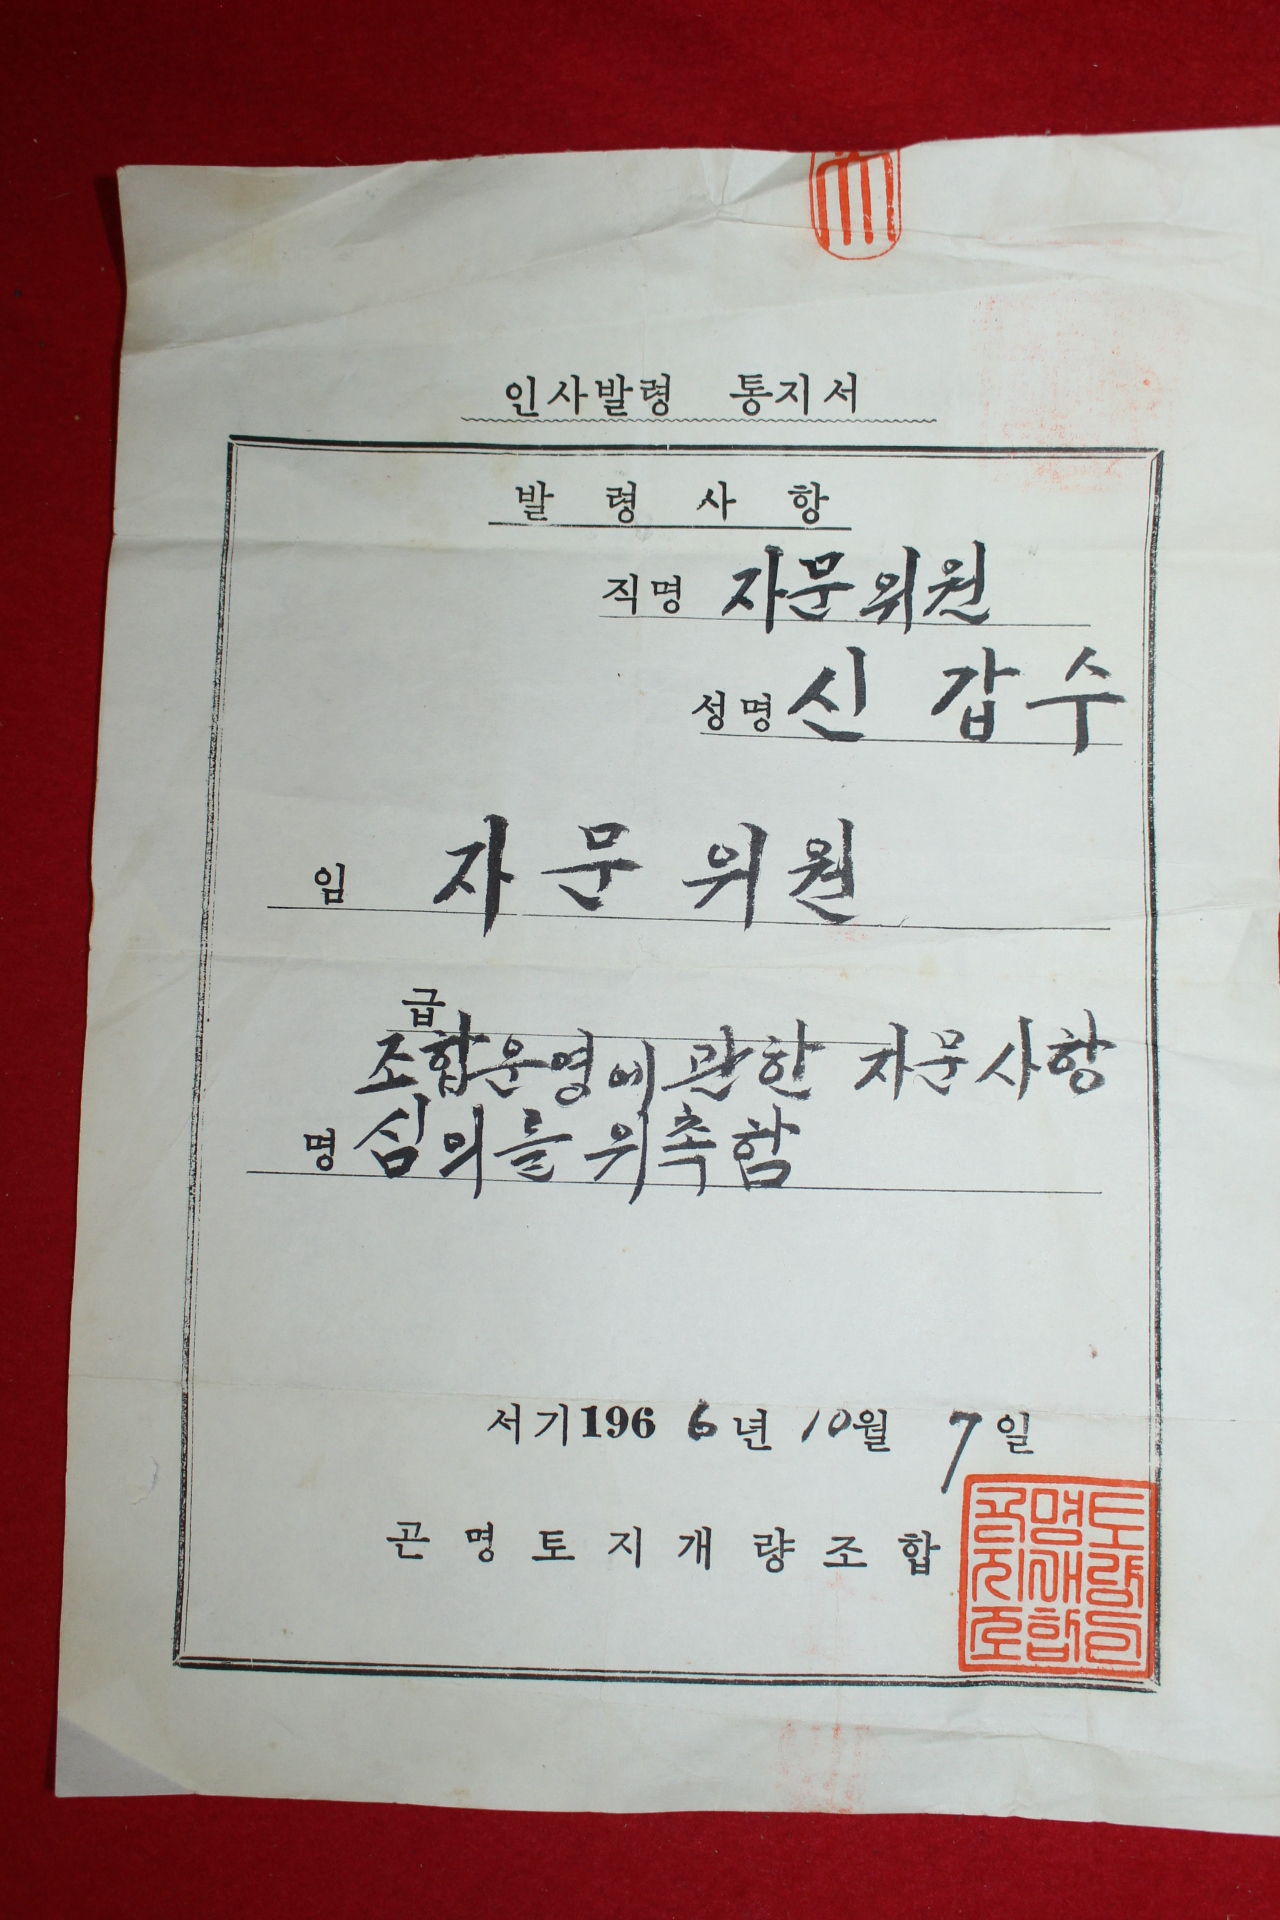 인사발령 통지서
발령사항
직명 자문위원
성명 신갑수
임 자문위원
급
조합운영에관한 자문사항
명 심의를 위촉함
서기196 6년 10월 7일
곤명토지개량조합